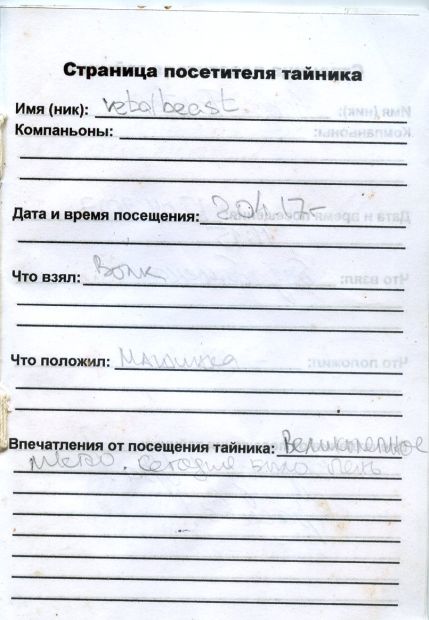 Страница посетителя тайника
Имя (ник): rebelbeast
Компаньоны:
Дата и время посещения:
Что взял: Волк
Что положил: Машинка
Впечатления от посещения тайника: Великолепное
место. Сегодня было лень